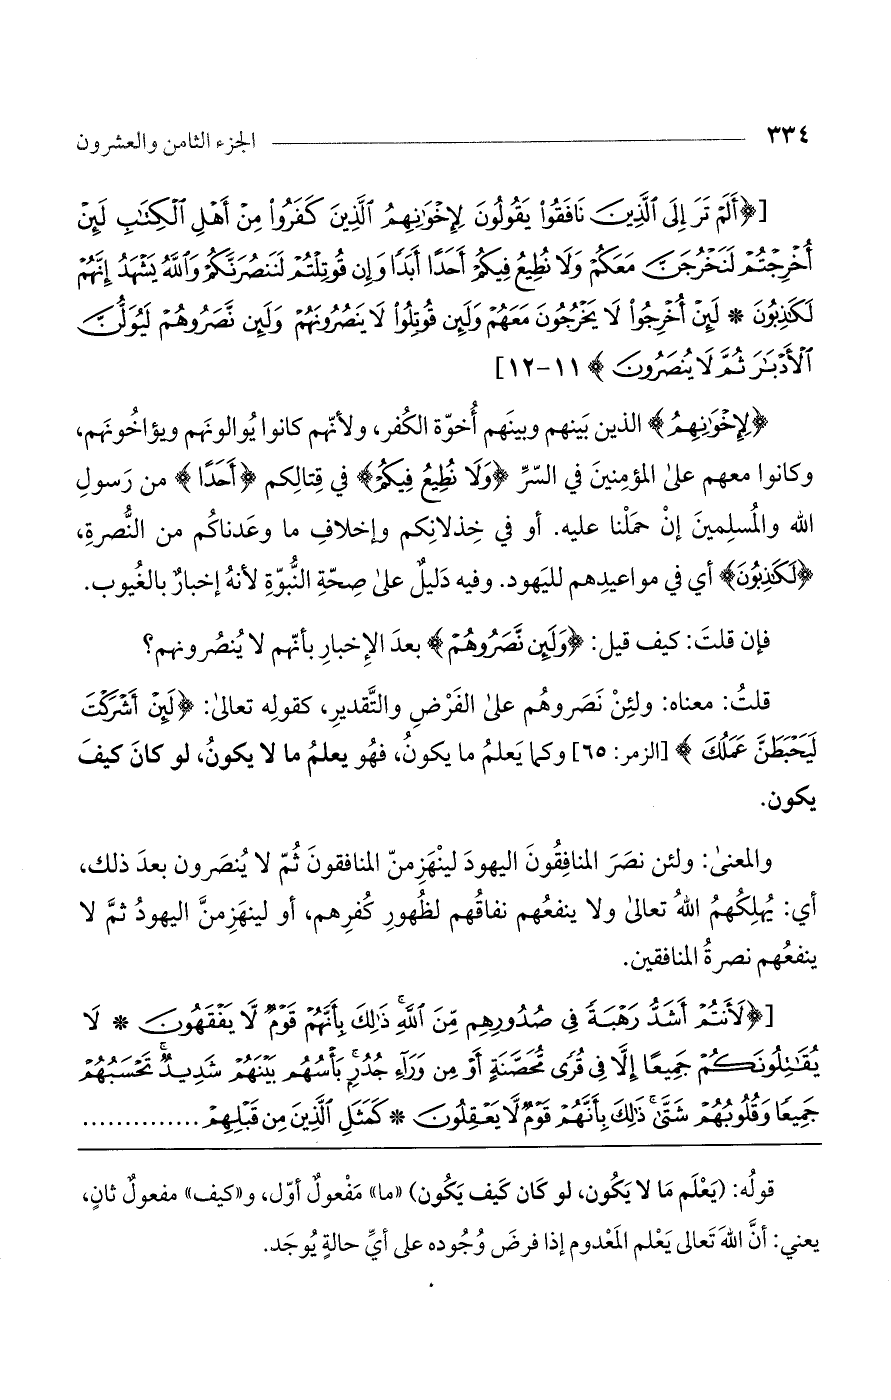 ٣٣٤ الجزء الثامن والعشرون
[﴿أَلَمْ تَرَ إِلَى ٱلَّذِينَ نَافَقُوا۟ يَقُولُونَ لِإِخْوَٰنِهِمُ ٱلَّذِينَ كَفَرُوا۟ مِنْ أَهْلِ ٱلْكِتَٰبِ لَئِنْ
أُخْرِجْتُمْ لَنَخْرُجَنَّ مَعَكُمْ وَلَا نُطِيعُ فِيكُمْ أَحَدًا أَبَدًا وَإِن قُوتِلْتُمْ لَنَنصُرَنَّكُمْ وَٱللَّهُ يَشْهَدُ إِنَّهُمْ
لَكَٰذِبُونَ * لَئِنْ أُخْرِجُوا۟ لَا يَخْرُجُونَ مَعَهُمْ وَلَئِن قُوتِلُوا۟ لَا يَنصُرُونَهُمْ وَلَئِن نَّصَرُوهُمْ لَيُوَلُّنَّ
ٱلْأَدْبَٰرَ ثُمَّ لَا يُنصَرُونَ﴾ ١١-١٢]
﴿لِإِخْوَٰنِهِمُ﴾ الذين بَينهم وبينَهم أُخوّة الكُفر، ولأنّهم كانوا يُوالونَهم ويؤاخُونَهم،
وكانوا معهم علىٰ المؤمِنينَ في السِّرِّ ﴿وَلَا نُطِيعُ فِيكُمْ﴾ في قِتالِكم ﴿أَحَدًا﴾ من رَسولِ
الله والمُسلِمينَ إنْ حمَلْنا عليه. أو في خِذلانِكم وإخلافِ ما وعَدناكُم من النُّصرةِ،
﴿لَكَٰذِبُونَ﴾ أي في مواعيدِهم لليَهود. وفيه دَليلٌ علىٰ صِحّةِ النُّبوّةِ لأنهُ إخبارٌ بالغُيوب.
فإن قلتَ: كيف قيل: ﴿وَلَئِن نَّصَرُوهُمْ﴾ بعدَ الإخبارِ بأنّهم لا يُنصُرونهم؟
قلتُ: معناه: ولئِنْ نَصَروهُم علىٰ الفَرْضِ والتَّقديرِ، كقولِه تعالىٰ: ﴿لَئِنْ أَشْرَكْتَ
لَيَحْبَطَنَّ عَمَلُكَ﴾ [الزمر: ٦٥] وكما يَعلمُ ما يكونُ، فهُو يعلمُ ما لا يكونُ، لو كانَ كيفَ
يكون.
والمعنىٰ: ولئن نصَرَ المنافِقُونَ اليهودَ لينْهَزِمنّ المنافقونَ ثُمّ لا يُنصَرون بعدَ ذلك،
أي: يُهلِكُهمُ اللهُ تعالىٰ ولا ينفعُهم نفاقُهم لظُهورِ كُفرِهم، أو لينهَزِمنَّ اليهودُ ثمَّ لا
ينفعُهم نصرةُ المنافقين.
[﴿لَأَنتُمْ أَشَدُّ رَهْبَةً فِى صُدُورِهِم مِّنَ ٱللَّهِ ذَٰلِكَ بِأَنَّهُمْ قَوْمٌ لَّا يَفْقَهُونَ * لَا
يُقَٰتِلُونَكُمْ جَمِيعًا إِلَّا فِى قُرًى مُّحَصَّنَةٍ أَوْ مِن وَرَآءِ جُدُرٍۭ بَأْسُهُم بَيْنَهُمْ شَدِيدٌ تَحْسَبُهُمْ
جَمِيعًا وَقُلُوبُهُمْ شَتَّىٰ ذَٰلِكَ بِأَنَّهُمْ قَوْمٌ لَّا يَعْقِلُونَ * كَمَثَلِ ٱلَّذِينَ مِن قَبْلِهِمْ ..............
قولُه: (يَعْلَم مَا لا يَكُون، لو كَان كَيف يَكُون) «ما» مَفْعولٌ أوّل، و«كيف» مفعولٌ ثانٍ،
يعني: أنَّ اللهَ تَعالى يَعْلم المَعْدوم إذا فرضَ وُجُوده على أيِّ حالةٍ يُوجَد.